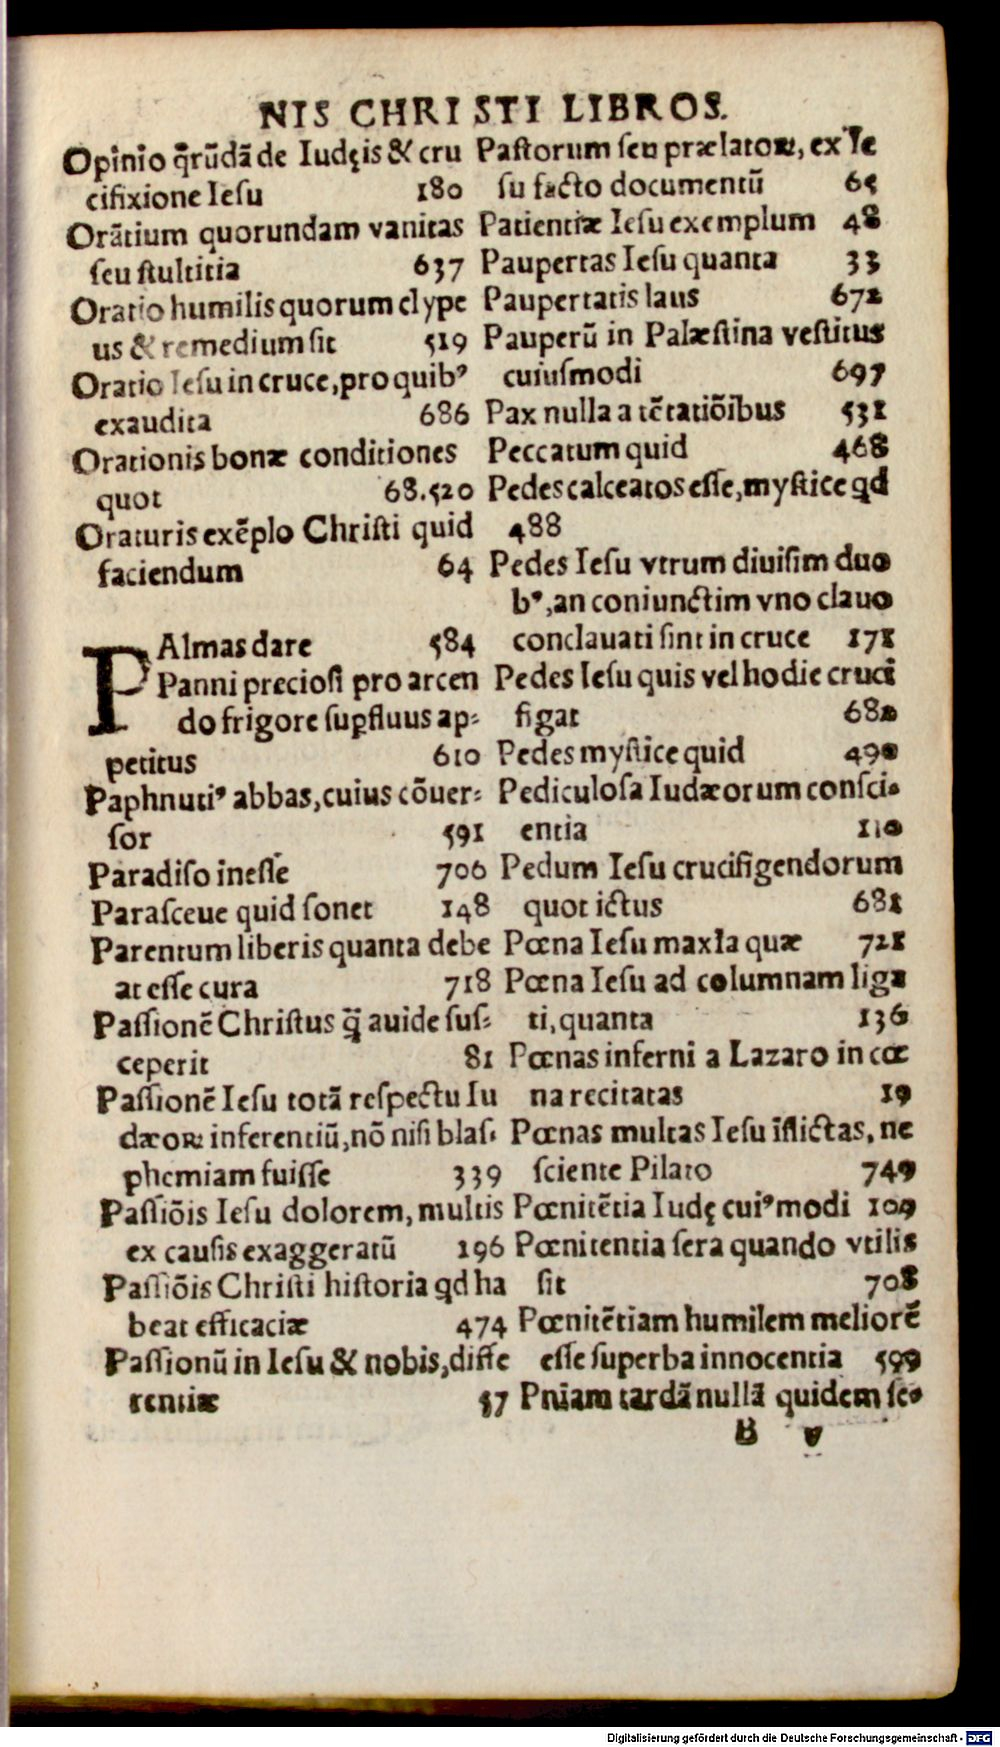 NIS CHRISTI LIBROS.
Opinio q̃rũdã de Iudęis & cru
cifixione Iesu 180
Orãtium quorundam vanitas
seu stultitia 637
Oratio humilis quorum clype
us & remedium sit 519
Oratio Iesu in cruce, pro quibꝰ
exaudita 686
Orationis bonæ conditiones
quot 68.520
Oraturis exẽplo Christi quid
faciendum 64
PAlmas dare 584
Panni preciosi pro arcen
do frigore suꝑfluus ap-
petitus 610
Paphnutiꝰ abbas, cuius cõuer-
sor 591
Paradiso inesse 706
Parasceue quid sonet 148
Parentum liberis quanta debe
at esse cura 718
Passionẽ Christus q̃̃ auide sus-
ceperit 81
Passionẽ Iesu totã respectu Iu
dæoꝝ inferentiũ, nõ nisi blas-
phemiam fuisse 339
Passiõis Iesu dolorem, multis
ex causis exaggeratũ 196
Passiõis Christi historia qd ha
beat efficaciæ 474
Passionũ in Iesu & nobis, diffe
rentiæ 57
Pastorum seu prælatoꝝ, ex Ie
su facto documentũ 65
Patientiæ Iesu exemplum 48
Paupertas Iesu quanta 33
Paupertatis laus 672
Pauperũ in Palæstina vestitus
cuiusmodi 697
Pax nulla a tẽtatiõibus 531
Peccatum quid 468
Pedes calceatos esse, mystice qd
488
Pedes Iesu vtrum diuisim duo
bꝰ, an coniunctim vno clauo
conclauati sint in cruce 171
Pedes Iesu quis vel hodie cruci
figat 682
Pedes mystice quid 490
Pediculosa Iudæorum consci-
entia 110
Pedum Iesu crucifigendorum
quot ictus 681
Pœna Iesu maxĩa quæ 721
Pœna Iesu ad columnam liga
ti, quanta 136
Pœnas inferni a Lazaro in cœ
na recitatas 19
Pœnas multas Iesu ĩflictas, ne
sciente Pilato 749
Pœnitẽtia Iudę cuiꝰmodi 109
Pœnitentia sera quando vtilis
sit 708
Pœnitẽtiam humilem meliorẽ
esse superba innocentia 599
Pniam tardã nullã quidem se-
B v
Digitalisierung gefördert durch die Deutsche Forschungsgemeinschaft - DFG